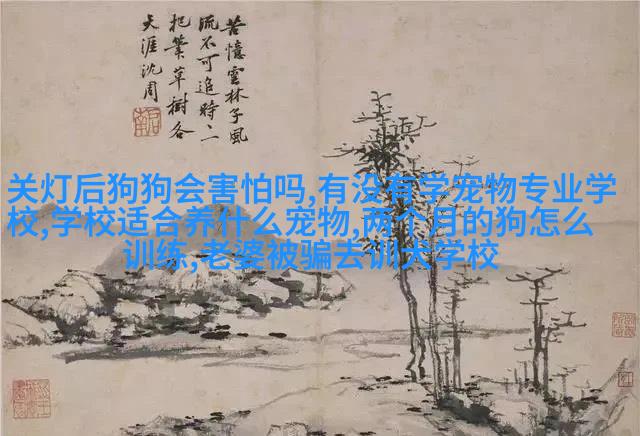 苦憶雲林子風
流不可追時二
把筆草樹各
天涯沈周
关灯后狗狗会害怕吗,有没有学宠物专业学
校,学校适合养什么宠物,两个月的狗怎么
训练,老婆被骗去训犬学校